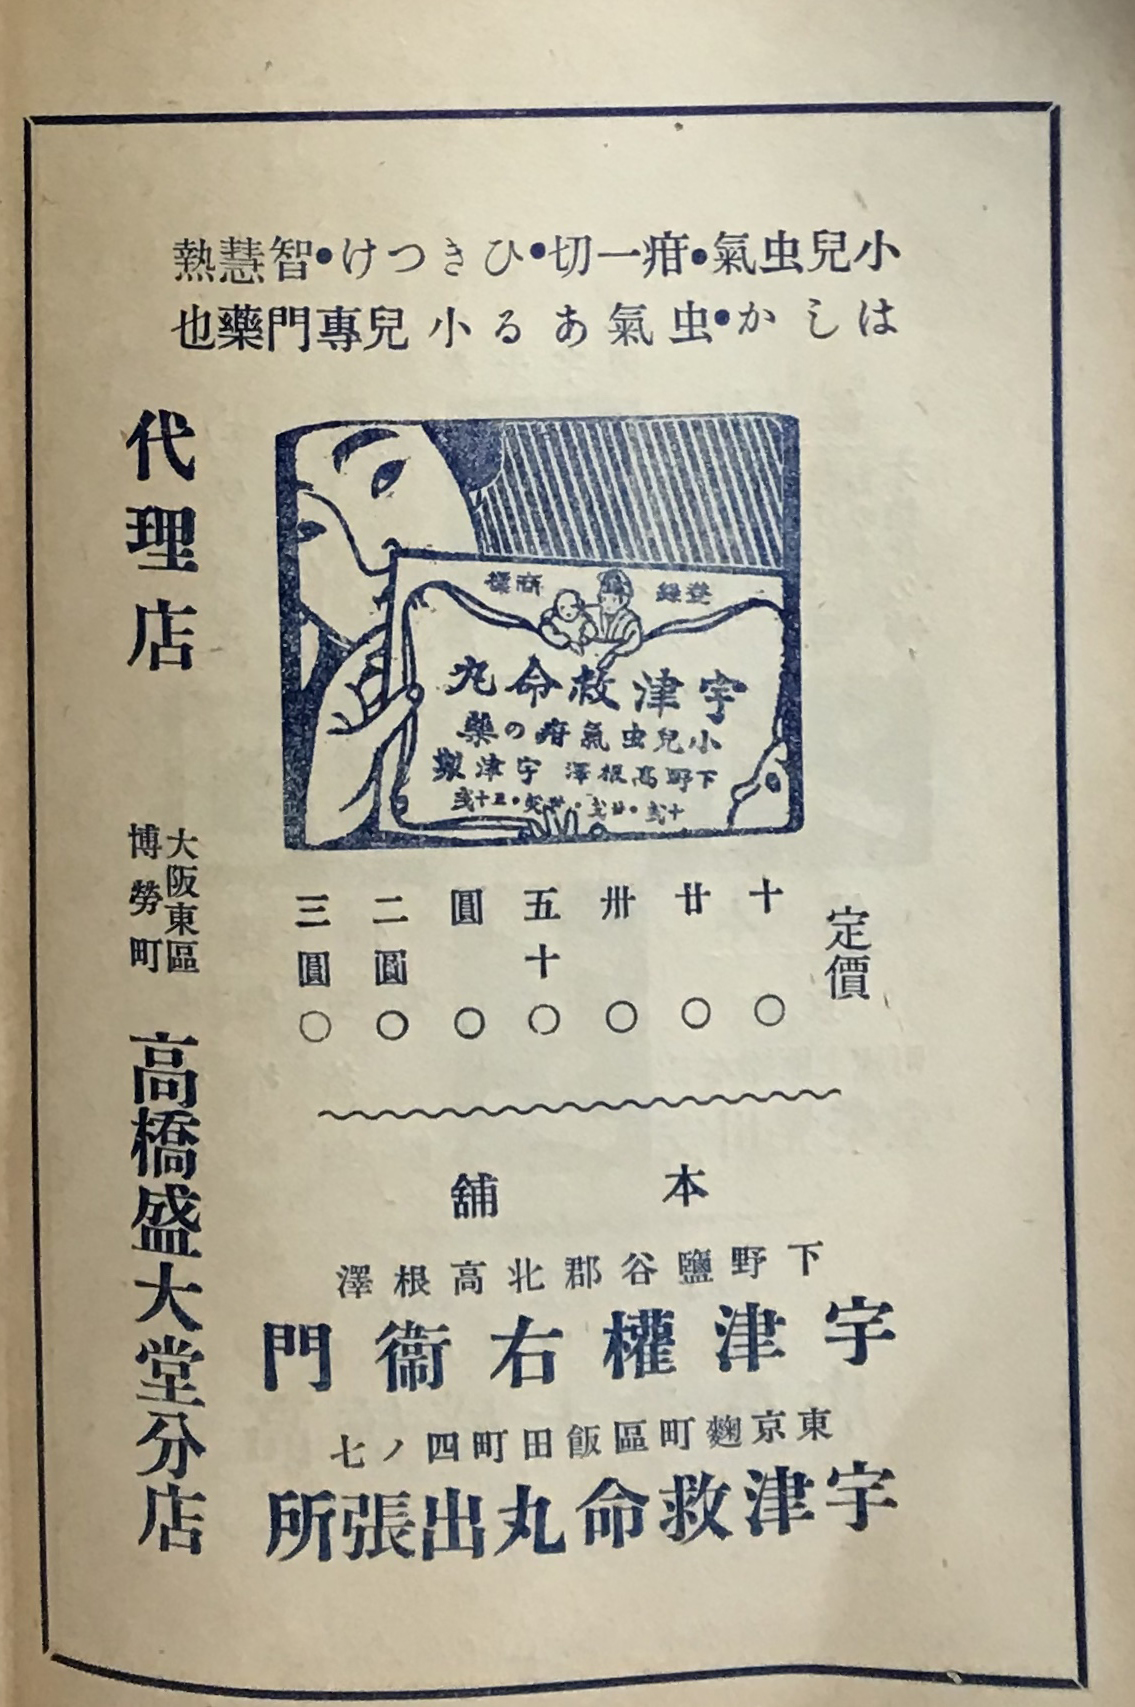 小兒虫氣•疳一切•ひきつけ•智慧熱
はしか•虫氣ある小兒專門藥也
登錄 商標
宇津救命丸
小兒虫氣疳の藥
下野高根澤 宇津製
定價
十 〇
廿 〇
卅 〇
五十 〇
圓 〇
二圓 〇
三圓 〇
本舖
下野鹽谷郡北高根澤
宇津權右衞門
東京麴町區飯田町四ノ七
宇津救命丸出張所
代理店
大阪東區
博勞町
高橋盛大堂分店